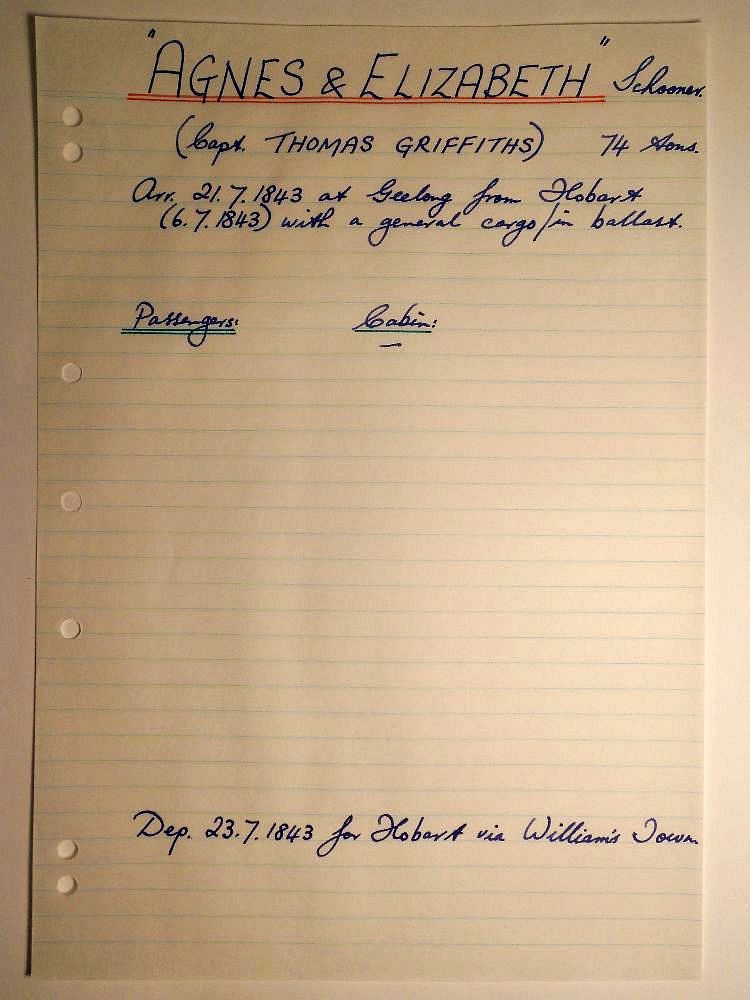 "AGNES & ELIZABETH" Schooner.
(Capt. THOMAS GRIFFITHS) 74 tons.
Arr. 21.7.1843 at Geelong from Hobart
(6.7.1843) with a general cargo/in ballast.
Passengers: Cabin:
—
Dep. 23.7.1843 for Hobart via William's Town